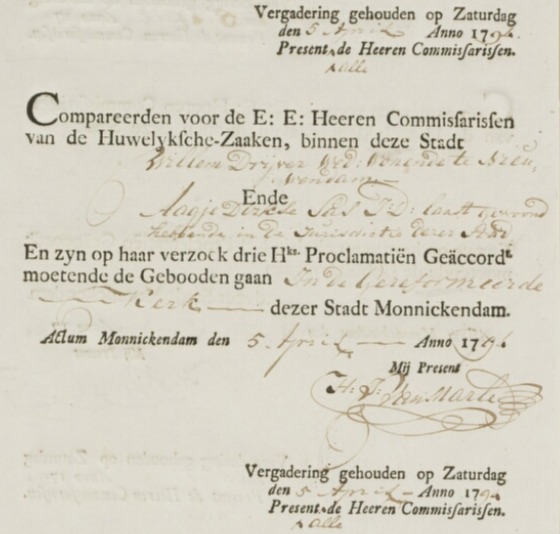 Vergadering gehouden op Zaturdag
den 5 April Anno 179
Present, de Heeren Commiſſariſſen.
alle
Compareerden voor de E: E: Heeren Commiſſariſſen
van de Huwelykſche-Zaaken, binnen deze Stadt
Willem Drijver Wed: Wonende te Nieu„
wendam
Ende
Aagje Dirks J: D: laast gewoond
hebbende in de Jurisdictie dezer Stad
En zyn op haar verzoek drie Hks. Proclamatiën Geäccordt.
moetende de Gebooden gaan In de Gereformeerde
Kerk dezer Stadt Monnickendam.
Actum Monnickendam den 5 April Anno 179
Mij Present
H: J: Van Marle
Vergadering gehouden op Zaturdag
den 5 April Anno 179
Present, de Heeren Commiſſariſſen.
alle